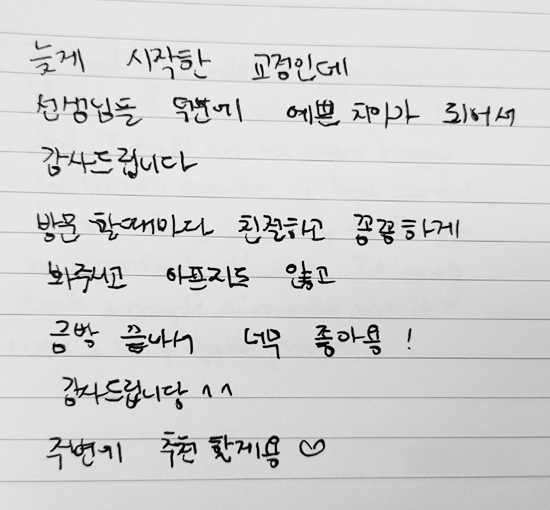 늦게 시작한 교정인데
선생님들 덕분에 예쁜 치아가 되어서
감사드립니다
방문 할때마다 친절하고 꼼꼼하게
봐주시고 아프지도 않고
금방 끝나서 너무 좋아용!
감사드립니당 ^^
주변에 추천 할게용 ♡